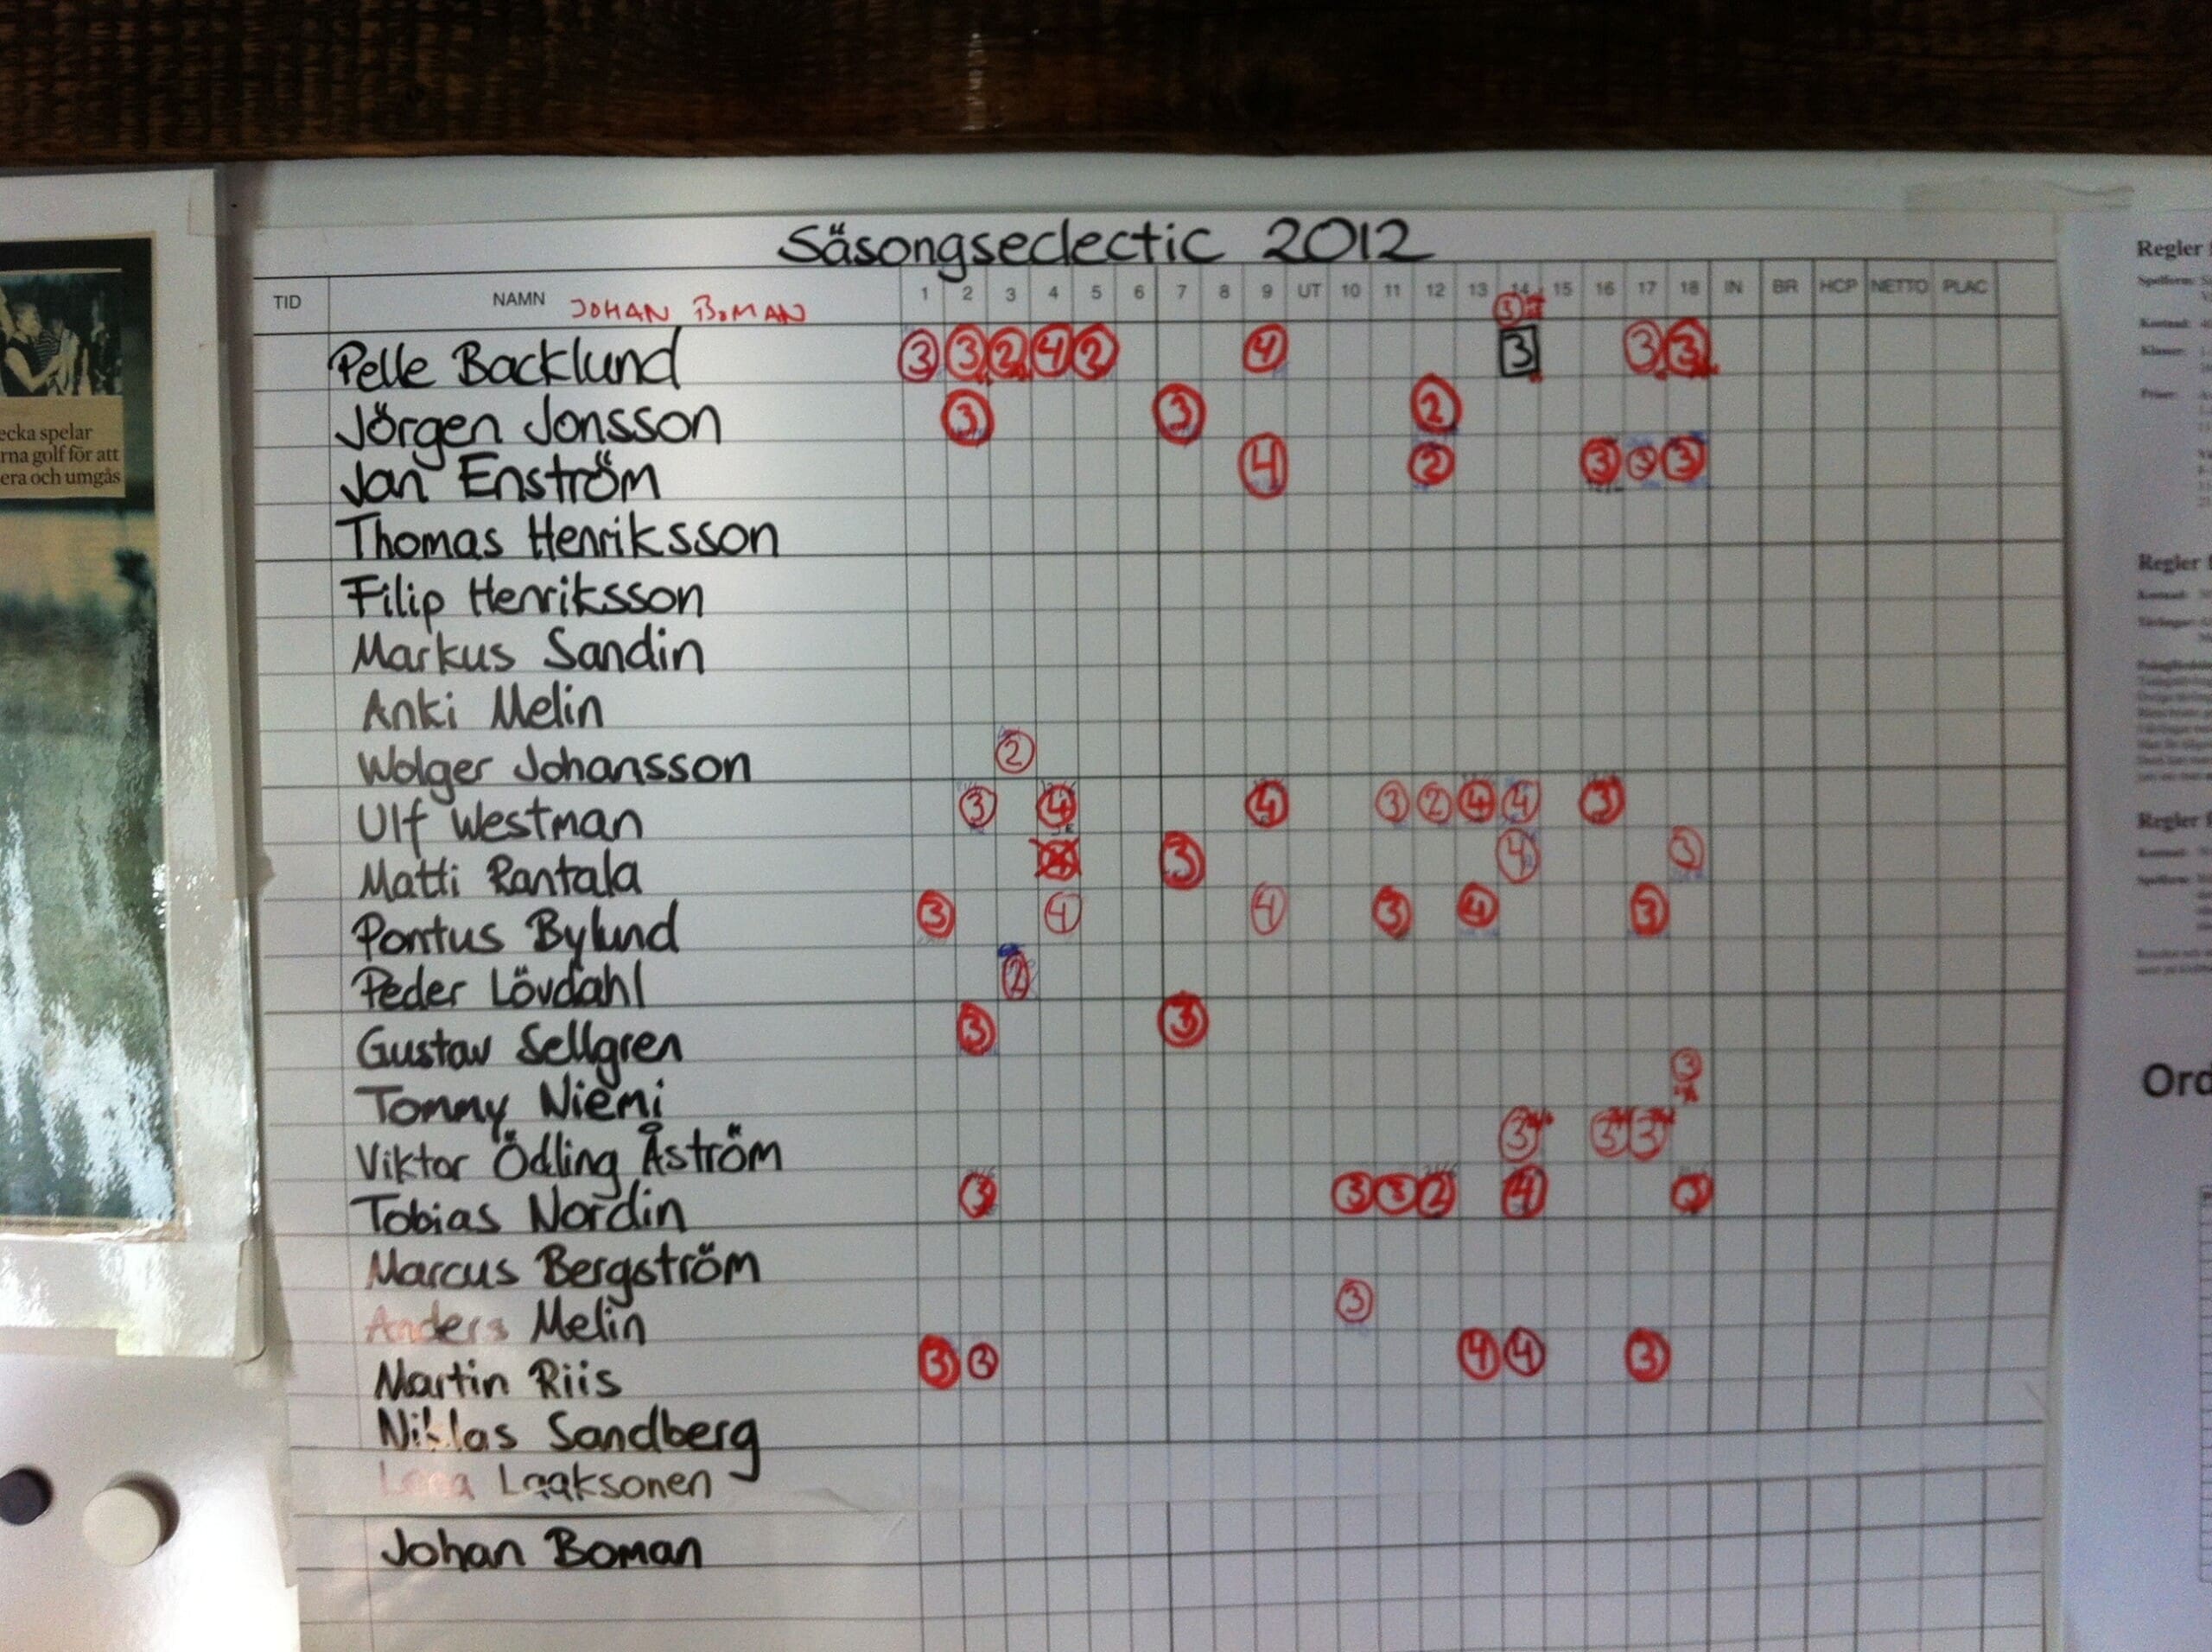 Säsongseclectic 2012
TID NAMN JOHAN BOMAN 1 2 3 4 5 6 7 8 9 UT 10 11 12 13 14 15 16 17 18 IN BR HCP NETTO PLAC
3
Pelle Backlund 3 3 2 4 2 4 3 3 3
Jörgen Jonsson 3 3 2
Jan Enström 4 2 3 3 3
Thomas Henriksson
Filip Henriksson
Markus Sandin
Anki Melin
Wolger Johansson 2
Ulf Westman 3 4 4 3 2 4 4 3
Matti Rantala 3 4 3
Pontus Bylund 3 4 4 3 4 3
Peder Lövdahl 2
Gustav Sellgren 3 3
Tommy Niemi 3
Viktor Ödling Åström 3 3 3
Tobias Nordin 3 3 3 2 4 3
Marcus Bergström
Anders Melin 3
Martin Riis 3 3 4 4 3
Niklas Sandberg
Laaksonen
Johan Boman
ecka spelar
rna golf för att
era och umgås
Regler
Regler
Regler
Ord